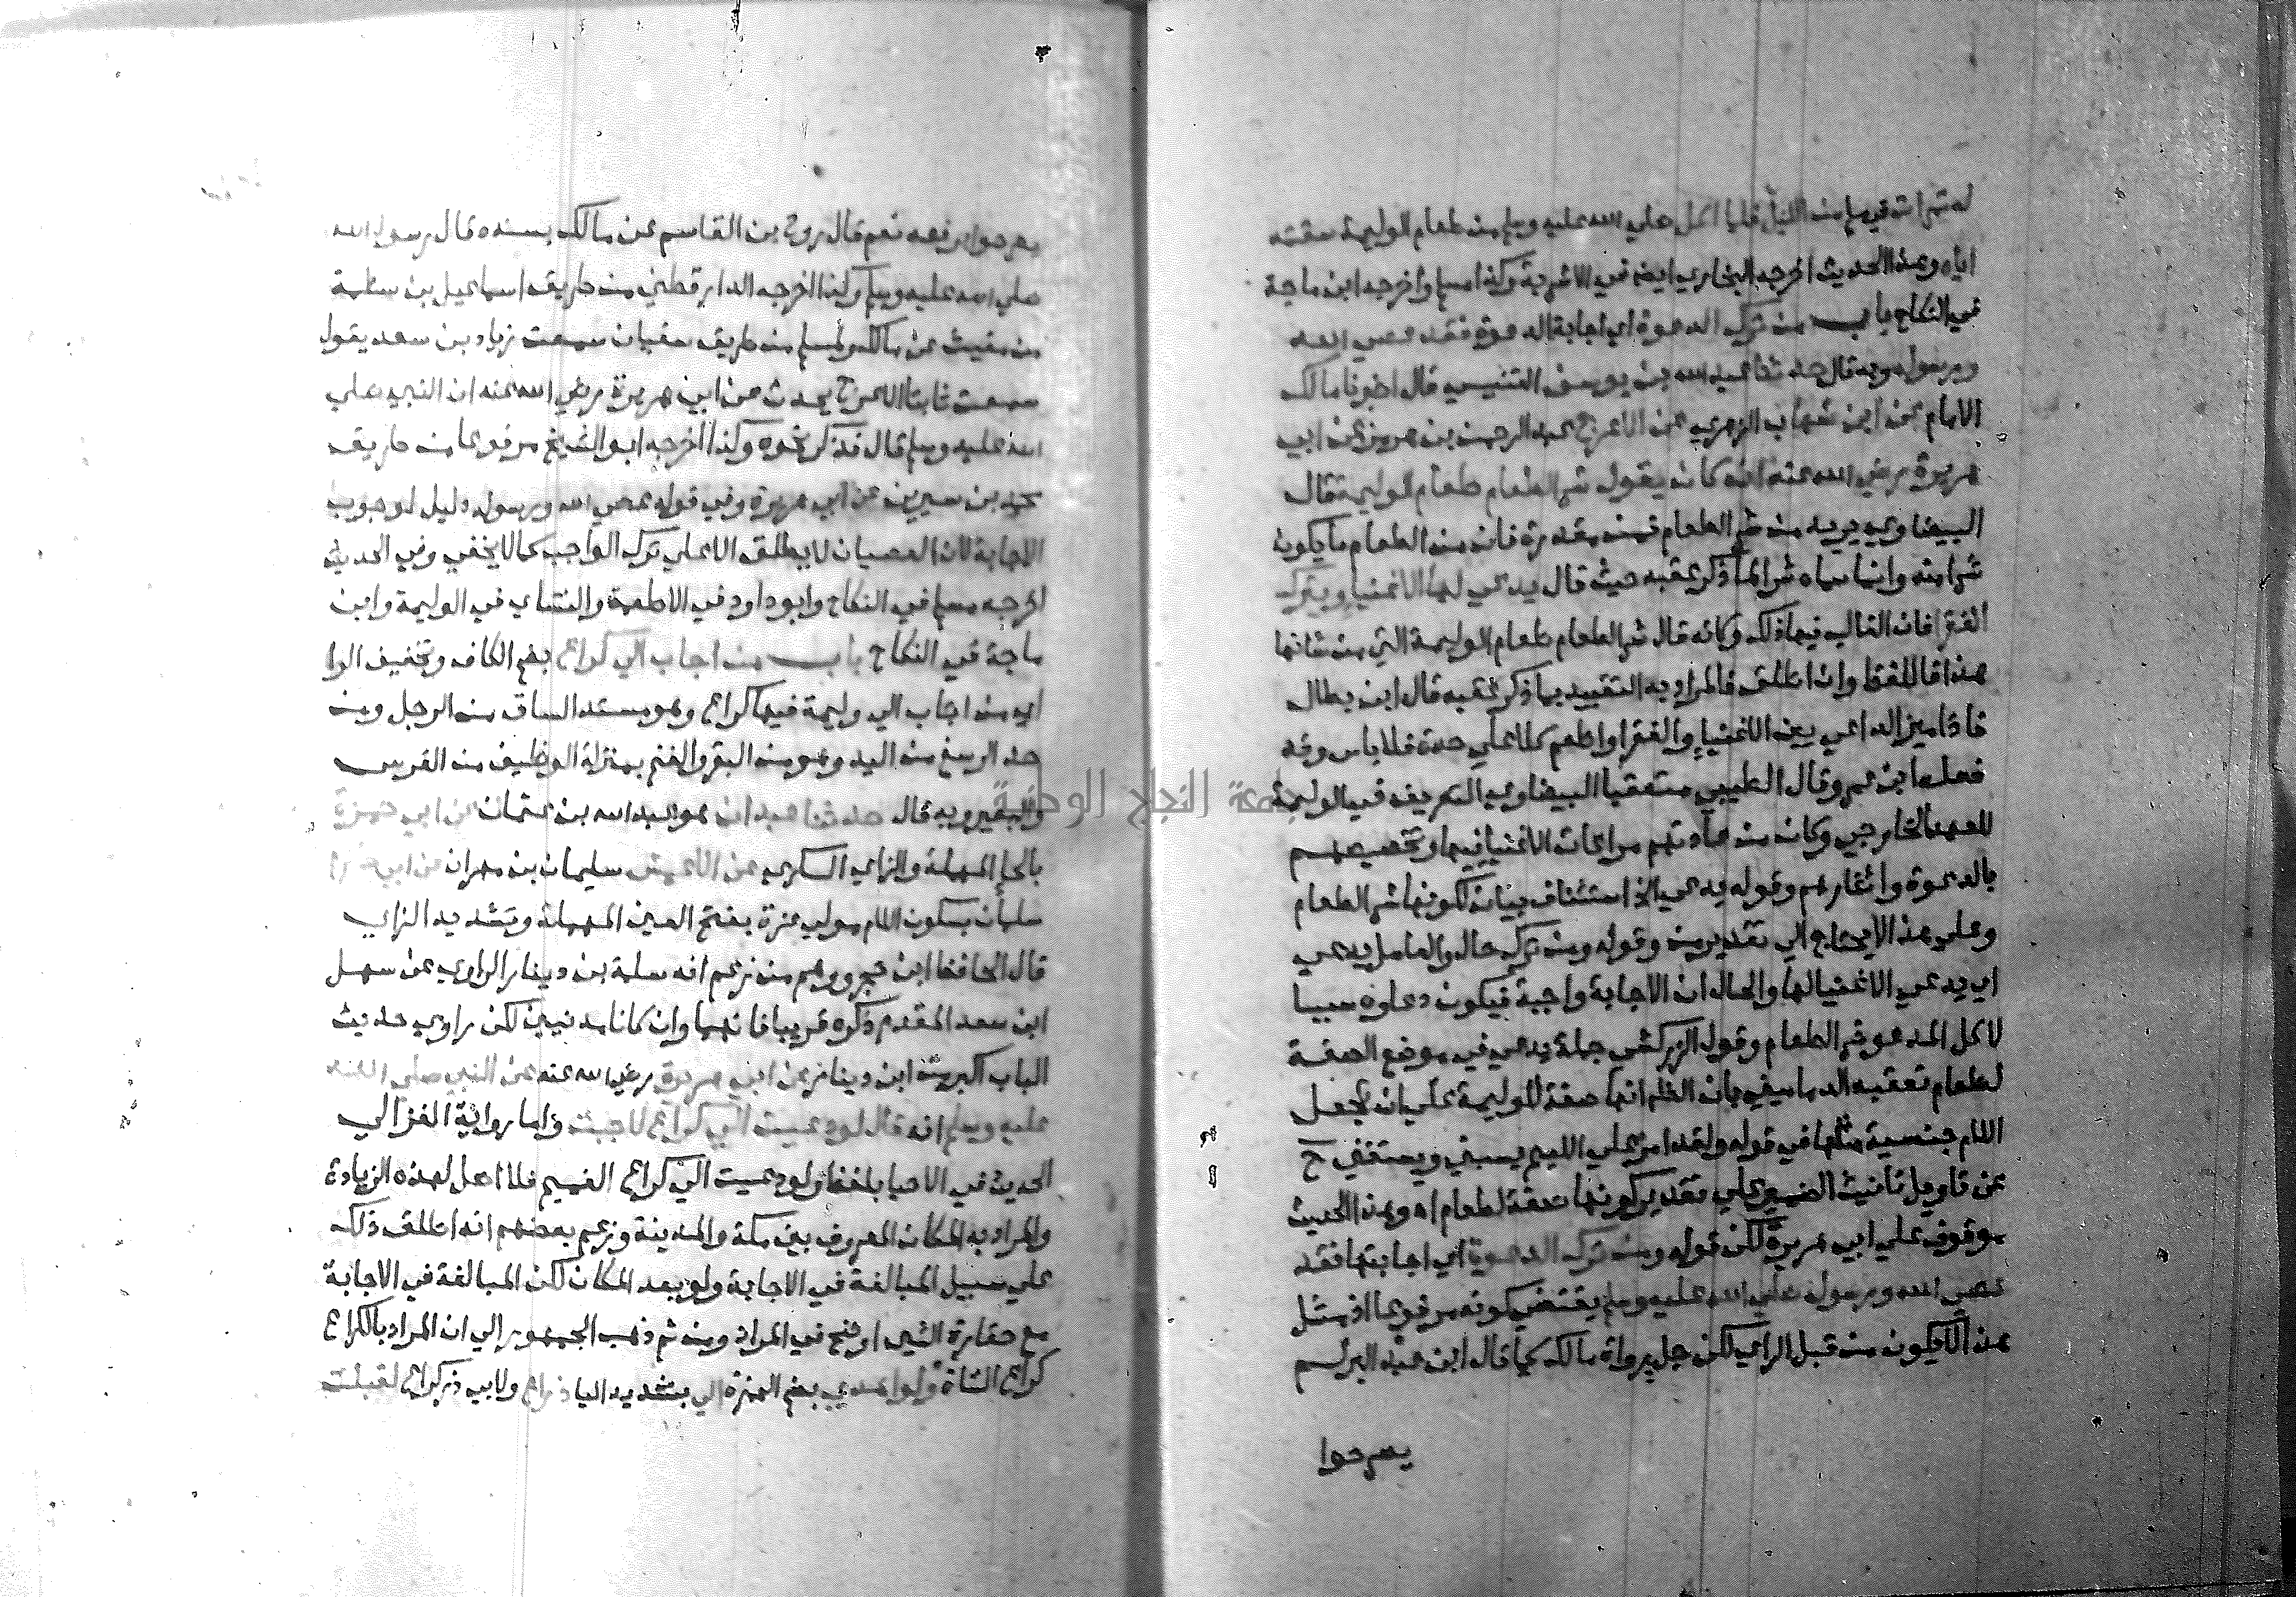 له تمرات في ماء من الليل فلما اكل صلي الله عليه وسلم من طعام الوليمة سقته
اياه وهذا الحديث اخرجه البخاري ايضا في الاشربة وكذا مسلم واخرجه ابن ماجة
في النكاح باب من ترك الدعوة اي اجابة الدعوة فقد عصي الله
ورسوله وبه قال حدثنا عبد الله بن يوسف التنيسي قال اخبرنا مالك
الامام عن ابن شهاب الزهري عن الاعرج عبد الرحمن بن هرمز عن ابي
هريرة رضي الله عنه انه كان يقول شر الطعام طعام الوليمة قال
البيضاوي يريد من شر الطعام فمن مقدرة فان من الطعام ما يكون
شرا منه وانما سماه شرا لما ذكر عقبه حيث قال يدعي لها الاغنيا ويترك
الفقرا فان الغالب فيها ذلك وكانه قال شر الطعام طعام الوليمة التي من شانها
هذا فاللفظ وان اطلق فالمراد به التقييد بما ذكر عقبه قال ابن بطال
فاذا ميز الداعي بين الاغنيا والفقرا واطعم كلا علي حدة فلا باس وقد
فعله ابن عمر وقال الطيبي متعقبا البيضاوي التعريف في الوليمة
للعهد الخارجي وكان من عادتهم مراعات الاغنيا فيها وتخصيصهم
بالدعوة وايثارهم وقوله يدعي الخ استئناف بيان لكونها شر الطعام
وعلي هذا لا يحتاج الي تقدير من وقوله ومن ترك حال والعامل يدعي
اي يدعي الاغنيا لها والحال ان الاجابة واجبة فيكون دعاوه سببا
لاكل المدعو شر الطعام وقول الزركشي جملة يدعي في موضع الصفة
لطعام تعقبه الدماميني بان الظاهر انها صفة للوليمة علي ان تجعل
اللام جنسية مثلها في قوله ولقد امر علي اللئيم يسبني ويستغني ح
عن تاويل تانيث الضمير علي تقدير كونها صفة لطعام اه وهذا الحديث
موقوف علي ابي هريرة لكن قوله ومن ترك الدعوة اي اجابتها فقد
عصي الله ورسوله صلي الله عليه وسلم يقتضي كونه مرفوعا اذ مثل
هذا لا يكون من قبل الراي لكن جل رواة مالك كما قال ابن عبد البر لم
يصرحوا
يصرحوا برفعه نعم قال روح بن القاسم عن مالك بسنده قال رسول الله
صلي الله عليه وسلم وكذا اخرجه الدارقطني من طريق اسماعيل بن سلمة
بن مغيث عن مالك ولمسلم من طريق سفيان سمعت زياد بن سعد يقول
سمعت ثابتا الاعرج يحدث عن ابي هريرة رضي الله عنه ان النبي صلي
الله عليه وسلم قال فذكر نحوه وكذا اخرجه ابو الشيخ مرفوعا من طريق
محمد بن سيرين عن ابي هريرة وفي قوله عصي الله ورسوله دليل لوجوب
الاجابة لان العصيان لا يطلق الا علي ترك الواجب كما لا يخفي وفي الحديث
اخرجه مسلم في النكاح وابو داود في الاطعمة والنسائي في الوليمة وابن
ماجة في النكاح باب من اجاب الي كراع بضم الكاف وتخفيف الرا
اي من اجاب الي وليمة فيها كراع وهو مستدق الساق من الرجل ومن
حد الرسغ من اليد وهو من البقر والغنم بمنزلة الوظيف من الفرس
والبعير وبه قال حدثنا عبدان هو عبد الله بن عثمان عن ابي حمزة
بالحا المهملة والزاي السكري عن الاعمش سليمان بن مهران عن ابي حازم
سلمان بسكون اللام مولي عزة بفتح العين المهملة وتشديد الزاي
قال الحافظ ابن حجر ووهم من زعم انه سلمة بن دينار الراوي عن سهل
ابن سعد المقدم ذكره قريبا فانهما وان كانا مدنيين لكن راوي حديث
الباب اكبر من ابن دينار عن ابي هريرة رضي الله عنه عن النبي صلي الله
عليه وسلم انه قال لو دعيت الي كراع لاجبت واما رواية الغزالي
الحديث في الاحيا بلفظ ولو دعيت الي كراع الغميم فلا اصل لهذه الزيادة
والمراد به المكان المعروف بين مكة والمدينة وزعم بعضهم انه اطلق ذلك
علي سبيل المبالغة في الاجابة ولو بعد المكان لكن المبالغة في الاجابة
مع حقارة الشي اوضح في المراد ومن ثم ذهب الجمهور الي ان المراد بالكراع
كراع الشاة ولو اهدي بضم الهمزة الي بتشديد اليا ذراع ولابي ذر كراع لقبلت